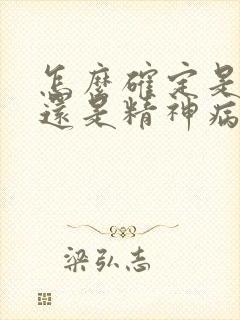 怎麼確定是
還是精神病
梁弘志